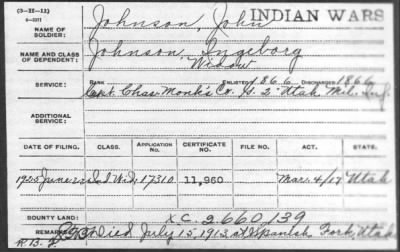 (3-II-11)
6-2371
INDIAN WARS
NAME OF SOLDIER: Johnson, John
NAME AND CLASS OF DEPENDENT: Johnson, Ingeborg
Widow
SERVICE: RANK ENLISTED 1866 DISCHARGED 1866
Capt. Chas. Monk's Co. H. 2" Utah Mil. Inf.
ADDITIONAL SERVICE:
DATE OF FILING. CLASS. APPLICATION NO. CERTIFICATE NO. FILE NO. ACT. STATE.
1925 June Ind Wid. 17310 11,960 Mar. 4/17 Utah
BOUNTY LAND: XC. 2660139
REMARKS: Died July 15, 1913, at Spanish Fork, Utah